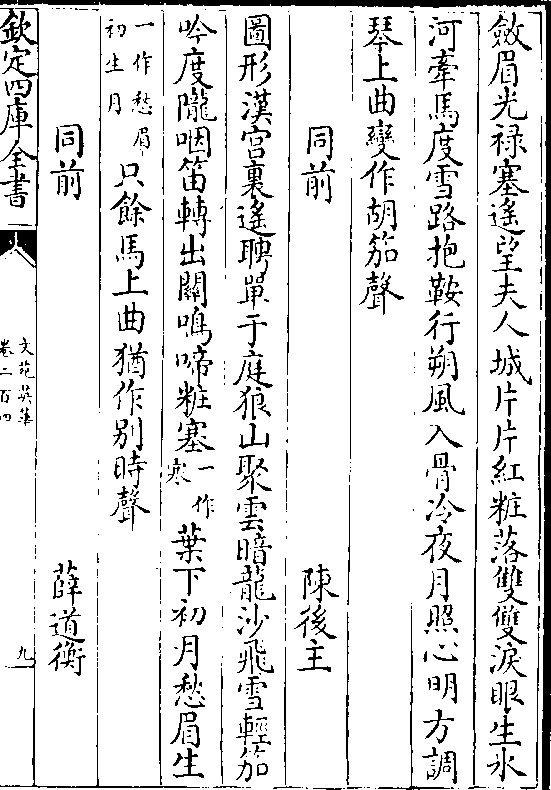 斂眉光祿塞遙望夫人城片片紅粧落雙雙淚眼生氷
河牽馬度雪路抱鞍行朔風入骨冷夜月照心明方調
琴上曲變作胡笳聲
同前 陳後主
圖形漢宮裏遙聘單于庭狼山聚雲暗龍沙飛雪輕笳
吟度隴咽笛轉出關鳴啼粧塞一作寒葉下初月愁眉生
一作愁眉初生月只餘馬上曲猶作别時聲
同前 薛道衡
欽定四庫全書 文苑英華 卷二百四 九